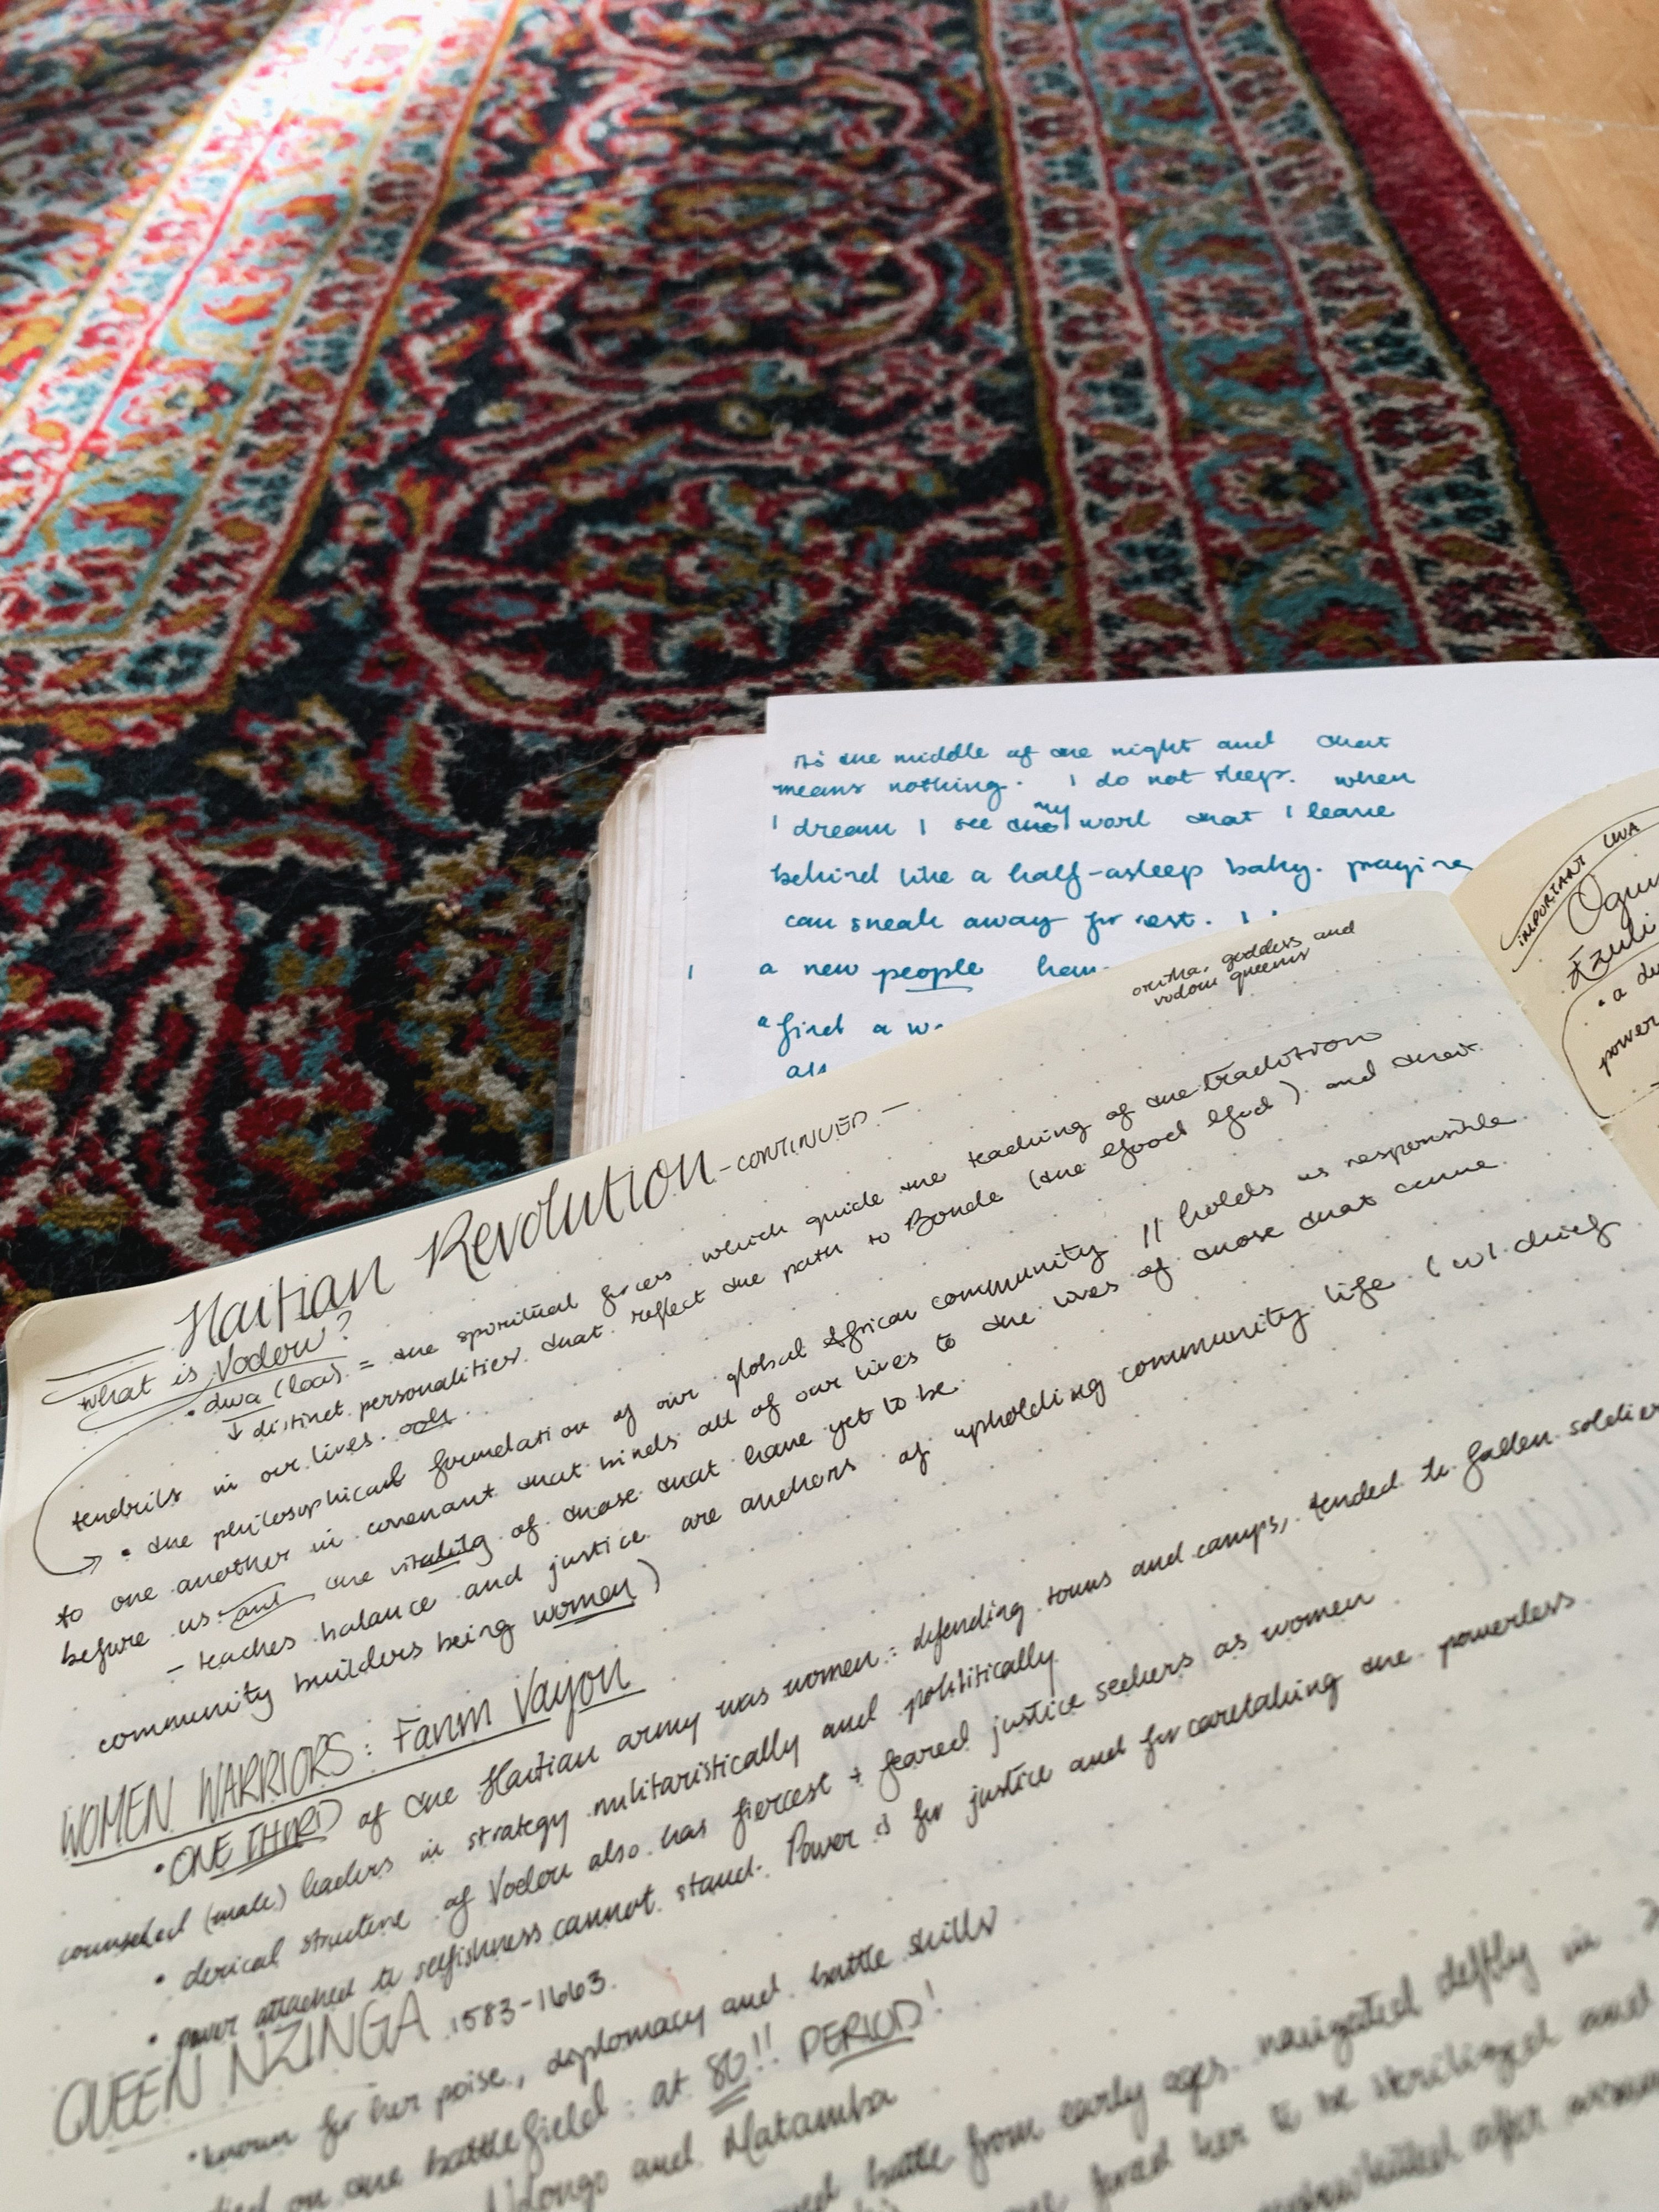 it's the middle of the night and that
means nothing. I do not sleep. when
I dream I see my work that I leave
behind like a half-asleep baby. praying
can sneak away for rest. I
I a new people have
"find a
als
IMPORTANT LWA
Ogun
Ezuli
• a
power
orisha, goddess and
vodou queens
Haitian Revolution - CONTINUED -
What is Vodou?
• lwa (loa) = the spiritual forces which guide the teaching of the tradition
↓ distinct personalities that reflect the path to Bonde (the Good God) and their
tendrils in our lives.
→ • the philosophical foundation of our global African community // holds us responsible
to one another in covenant that binds all of our lives to the lives of those that came
before us and the vitality of those that have yet to be.
- teaches balance and justice are anchors of upholding community life (w/ chief
community builders being women)
WOMEN WARRIORS: Fanm Vayon
• ONE THIRD of the Haitian army was women: defending towns and camps, tended to fallen soldiers
counseled (male) leaders in strategy militaristically and polititically
• clerical structure of Vodou also has fiercest + feared justice seekers as women
• power attached to selfishness cannot stand. Power is for justice and for caretaking the powerless
QUEEN NZINGA 1583-1663.
• known for her poise, diplomacy and battle skills
died on the battlefield: at 80!! PERIOD!
Ndongo and Matamba
battle from early ages navigated deftly in
forced her to be sterilized and
after